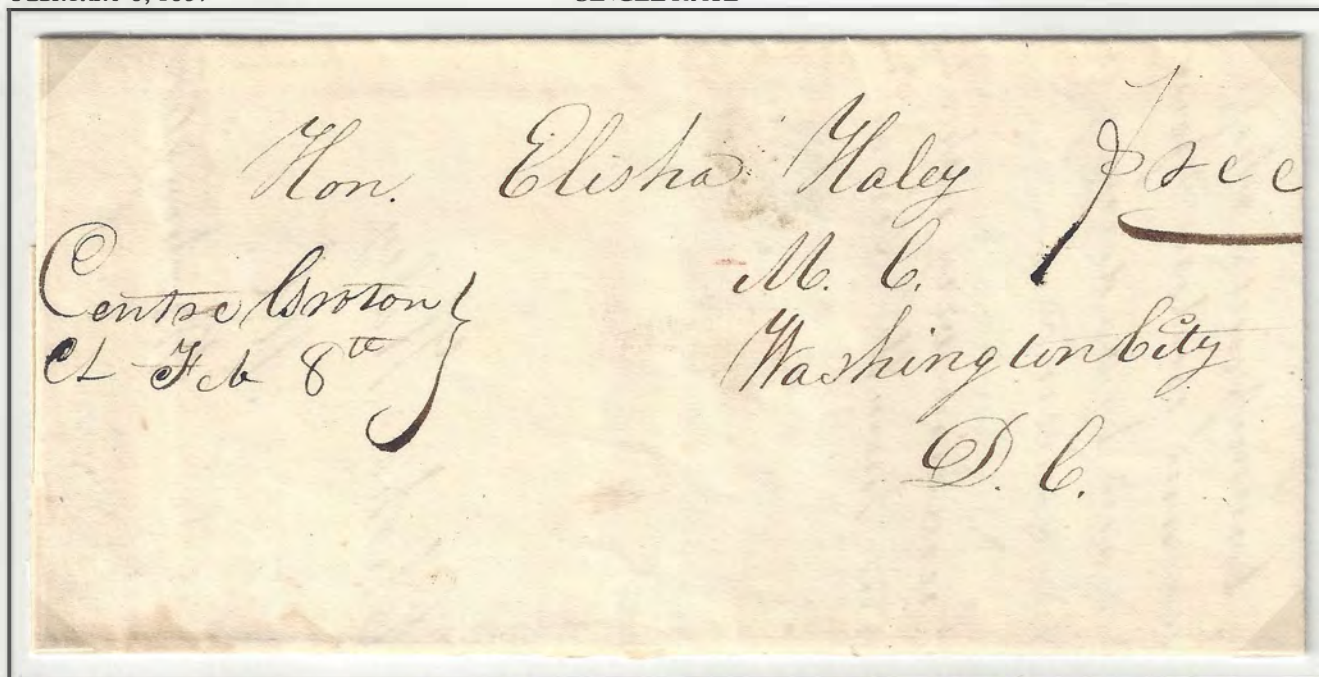 Hon. Elisha Haley Free
M. C.
Washington City
D. C.
Centre Groton
Ct Feb 8th